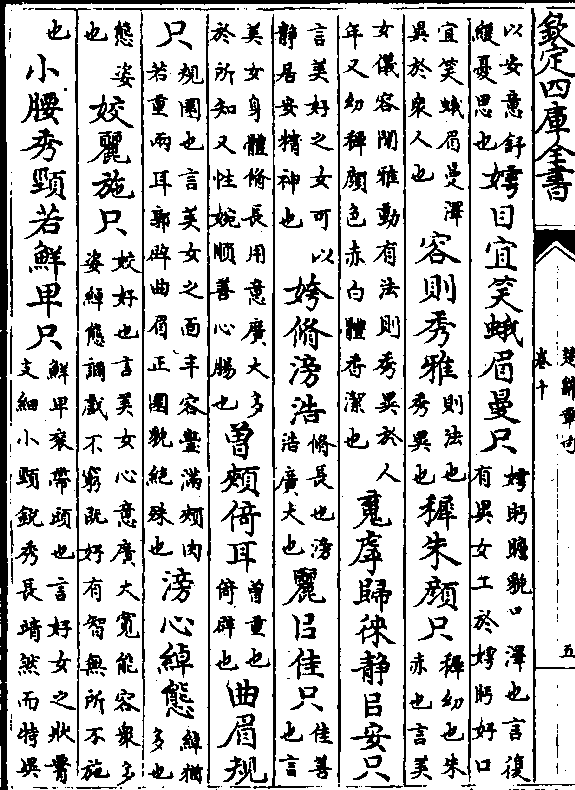 欽定四庫全書
楚辭章句
卷十
五
以安意舒
緩憂思也
嫮目宜笑蛾眉曼只
嫮眄瞻貌口 澤也言復
有異女工於嫮眄好口
宜笑蛾眉曼澤
異於衆人也
容則秀雅
則法也
秀異也
穉朱顔只
穉幼也朱
赤也言美
女儀容閒雅動有法則秀異於人
年又幼穉顔色赤白體香潔也
䰟虖歸徠静㠯安只
言美好之女可以
静居安精神也
姱脩滂浩
脩長也滂
浩廣大也
麗㠯佳只
佳善
也言
美女身體脩長用意廣大多
於所知又性婉順善心腸也
曾頰倚耳
曾重也
倚辟也
曲眉規
只
規圜也言美女之面丰容豐滿頰肉
若重兩耳郭辟曲眉正圜貌絶殊也
滂心綽態
綽猶
多也
態姿
也
姣麗施只
姣好也言美女心意廣大寛能容衆多
姿綽態調戲不窮既好有智無所不施
也
小腰秀頸若鮮卑只
鮮卑衮帶頭也言好女之狀腰
支細小頸鋭秀長靖然而特異